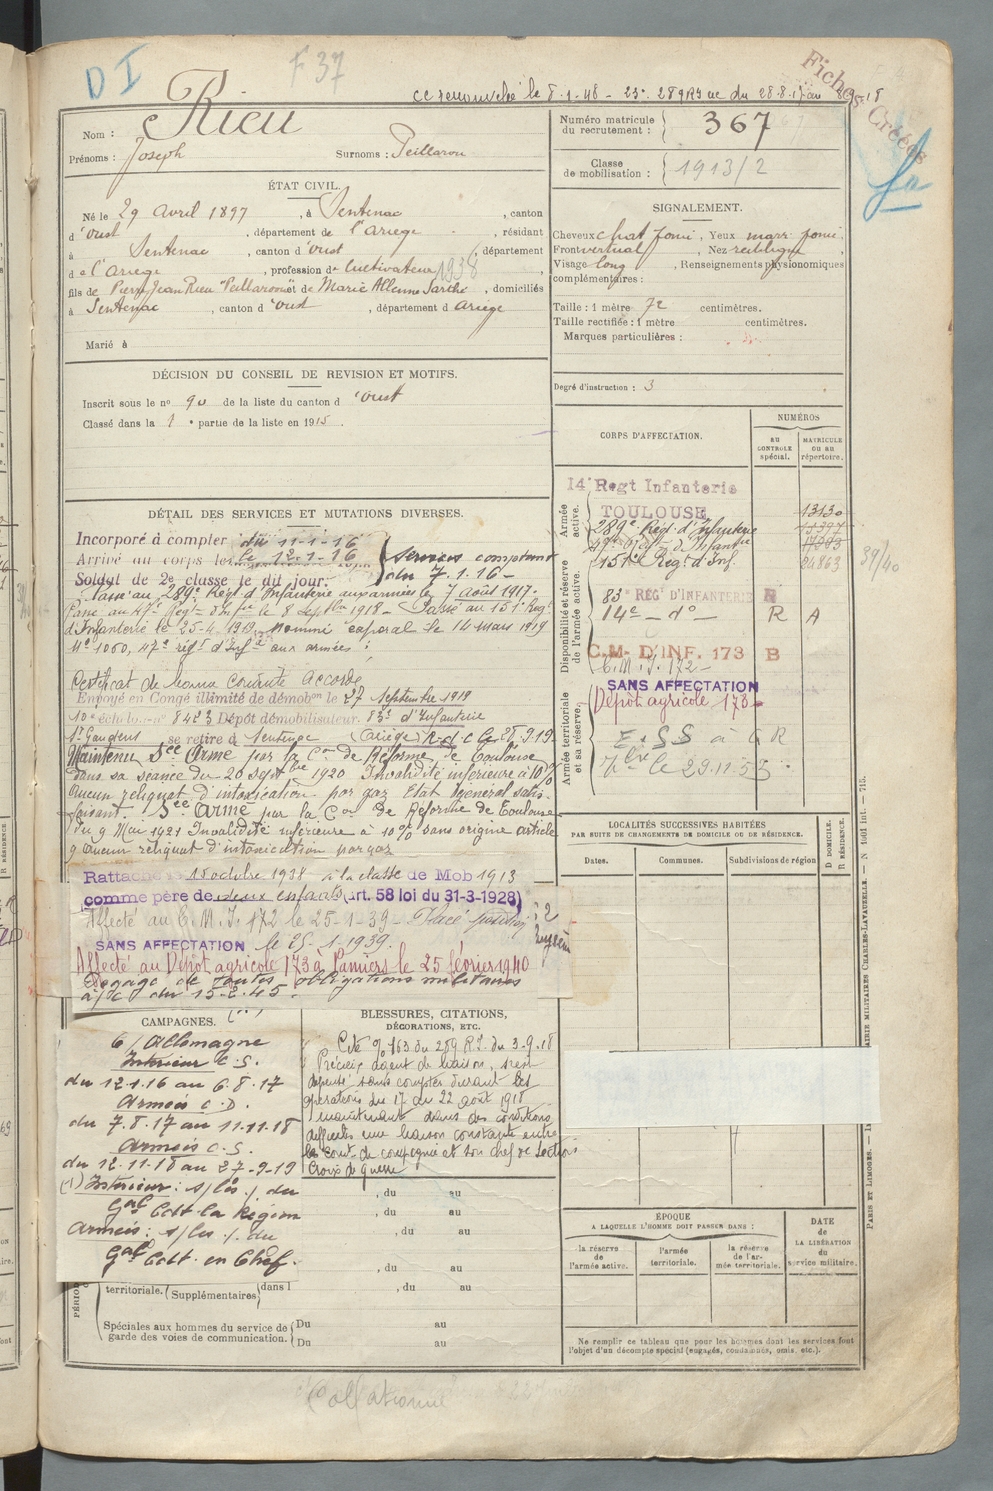 D I
F 37
cc renouvelé le 8.1.48 - 23e 289 RI du 28.8.17 au
Fiches Créées
Nom : Rieu
Prénoms : Joseph Surnoms : Peillarou
Numéro matricule du recrutement : 367
Classe de mobilisation : 1913/2
ÉTAT CIVIL.
Né le 29 avril 1897, à Sentenac, canton
d'Oust, département de l'Ariège, résidant
à Sentenac, canton d'Oust, département
de l'Ariège, profession de Cultivateur 1938
fils de Pierre Jean Rieu Peillarou et de Marie Allenne Sarthe, domiciliés
à Sentenac, canton d'Oust, département d'Ariège
Marié à
SIGNALEMENT.
Cheveux chat foncé, Yeux marr foncé,
Front vertical, Nez rectiligne
Visage long, Renseignements physionomiques
complémentaires :
Taille : 1 mètre 72 centimètres.
Taille rectifiée : 1 mètre centimètres.
Marques particulières :
Degré d'instruction : 3
DÉCISION DU CONSEIL DE REVISION ET MOTIFS.
Inscrit sous le no 90 de la liste du canton d'Oust
Classé dans la 1e partie de la liste en 1915.
CORPS D'AFFECTATION.
NUMÉROS
AU CONTROLE spécial.
MATRICULE OU AU répertoire.
Armée active.
14e Regt Infanterie
TOULOUSE 13130
289e Regt d'Infanterie
47e Regt d'Infanterie
151e Regt d'Inf. 24863
39/40
Disponibilité et réserve de l'armée active.
83e REGt D'INFANTERIE R
14e - do - R A
C.M. D'INF. 173 B
C.M.I. 172 -
SANS AFFECTATION
Dépôt agricole 173-
Armée territoriale et sa réserve.
le 29.11.53
DÉTAIL DES SERVICES ET MUTATIONS DIVERSES.
Incorporé à compter du 11-1-16
Arrivé au corps le 12-1-16
Services comptant du 7.1.16 -
Soldat de 2e classe le dit jour.
Passé au 289e Régt d'Infanterie aux armées le 7 août 1917.
Passé au 47e Régt d'Infie le 8 septbre 1918 - Passé au 151e Régt
d'Infanterie le 25-4-1919. Nommé caporal le 14 mars 1919
No 1060, 47e régt d'Infie aux armées ;
Certificat de bonne conduite Accordé
Envoyé en Congé illimité de démobon le 27 septembre 1919
10e échelon no 8423 Dépôt démobilisateur 83e d'Infanterie
St Gaudens se retire à Sentenac (Ariège) R.d.c le 28.9.19
Maintenu Sce Armé par la Con de Réforme de Toulouse
dans sa séance du 20 septbre 1920 Invalidité inférieure à 10%
Aucun reliquat d'intoxication par gaz Etat général satis-
faisant. Sce Armé par la Con de Réforme de Toulouse
du 9 Mai 1921 Invalidité inférieure à 10% sans origine article
9 Aucun reliquat d'intoxication par gaz
Rattaché le 15 octobre 1938 à la classe de Mob 1913
comme père de deux enfants (art. 58 loi du 31-3-1928)
Affecté au C.M.I. 172 le 25-1-39 - Placé position
SANS AFFECTATION le 25-1-1939.
Affecté au Dépôt agricole 173 à Pamiers le 25 février 1940
Dégagé de toutes obligations militaires
à/c du 15-2-45.
LOCALITÉS SUCCESSIVES HABITÉES
PAR SUITE DE CHANGEMENTS DE DOMICILE OU DE RÉSIDENCE.
Dates. Communes. Subdivisions de région
D DOMICILE. R RÉSIDENCE.
CAMPAGNES.
C/ Allemagne
Intérieur C.S.
du 12.1.16 au 6.8.17
Armées C.D.
du 7.8.17 au 11.11.18
Armées C.S.
du 12.11.18 au 27-9-19
(1) Intérieur : s/les . du
Gal Cdt la Région
Armées : s/les . du
Gal Cdt en Chef.
BLESSURES, CITATIONS,
DÉCORATIONS, ETC.
Cité o/163 du 289 R.I. du 3-9-18
"Précieux agent de liaison, s'est
dépensé sans compter durant les
opérations du 17 au 22 août 1918
maintenant dans des conditions
difficiles une liaison constante entre
le Cont de compagnie et son chef de section
Croix de guerre
, du au
, du au
, du au
, du au
territoriale. Supplémentaires dans l , du au
Spéciales aux hommes du service de garde des voies de communication. Du au
Du au
ÉPOQUE
A LAQUELLE L'HOMME DOIT PASSER DANS :
la réserve de l'armée active.
l'armée territoriale.
la réserve de l'armée territoriale.
DATE de LA LIBÉRATION du service militaire.
Ne remplir ce tableau que pour les hommes dont les services font
l'objet d'un décompte spécial (engagés, condamnés, omis, etc.).
PARIS ET LIMOGES.
MILITAIRES CHARLES-LAVAUZELLE. - N 1001 Int. - 715.
Collationné